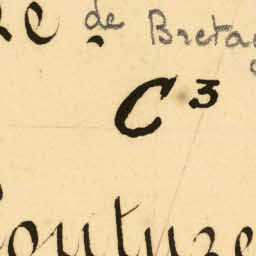 de Bretag
C³
outure